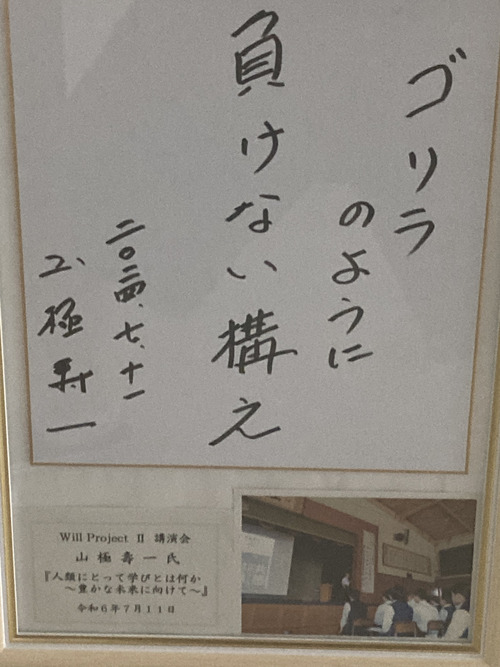 ゴリラ
のように
負けない構え
二〇二四、七、十一
山極寿一
Will Project Ⅱ 講演会
山極壽一氏
『人類にとって学びとは何か
～豊かな未来に向けて～』
令和6年7月11日